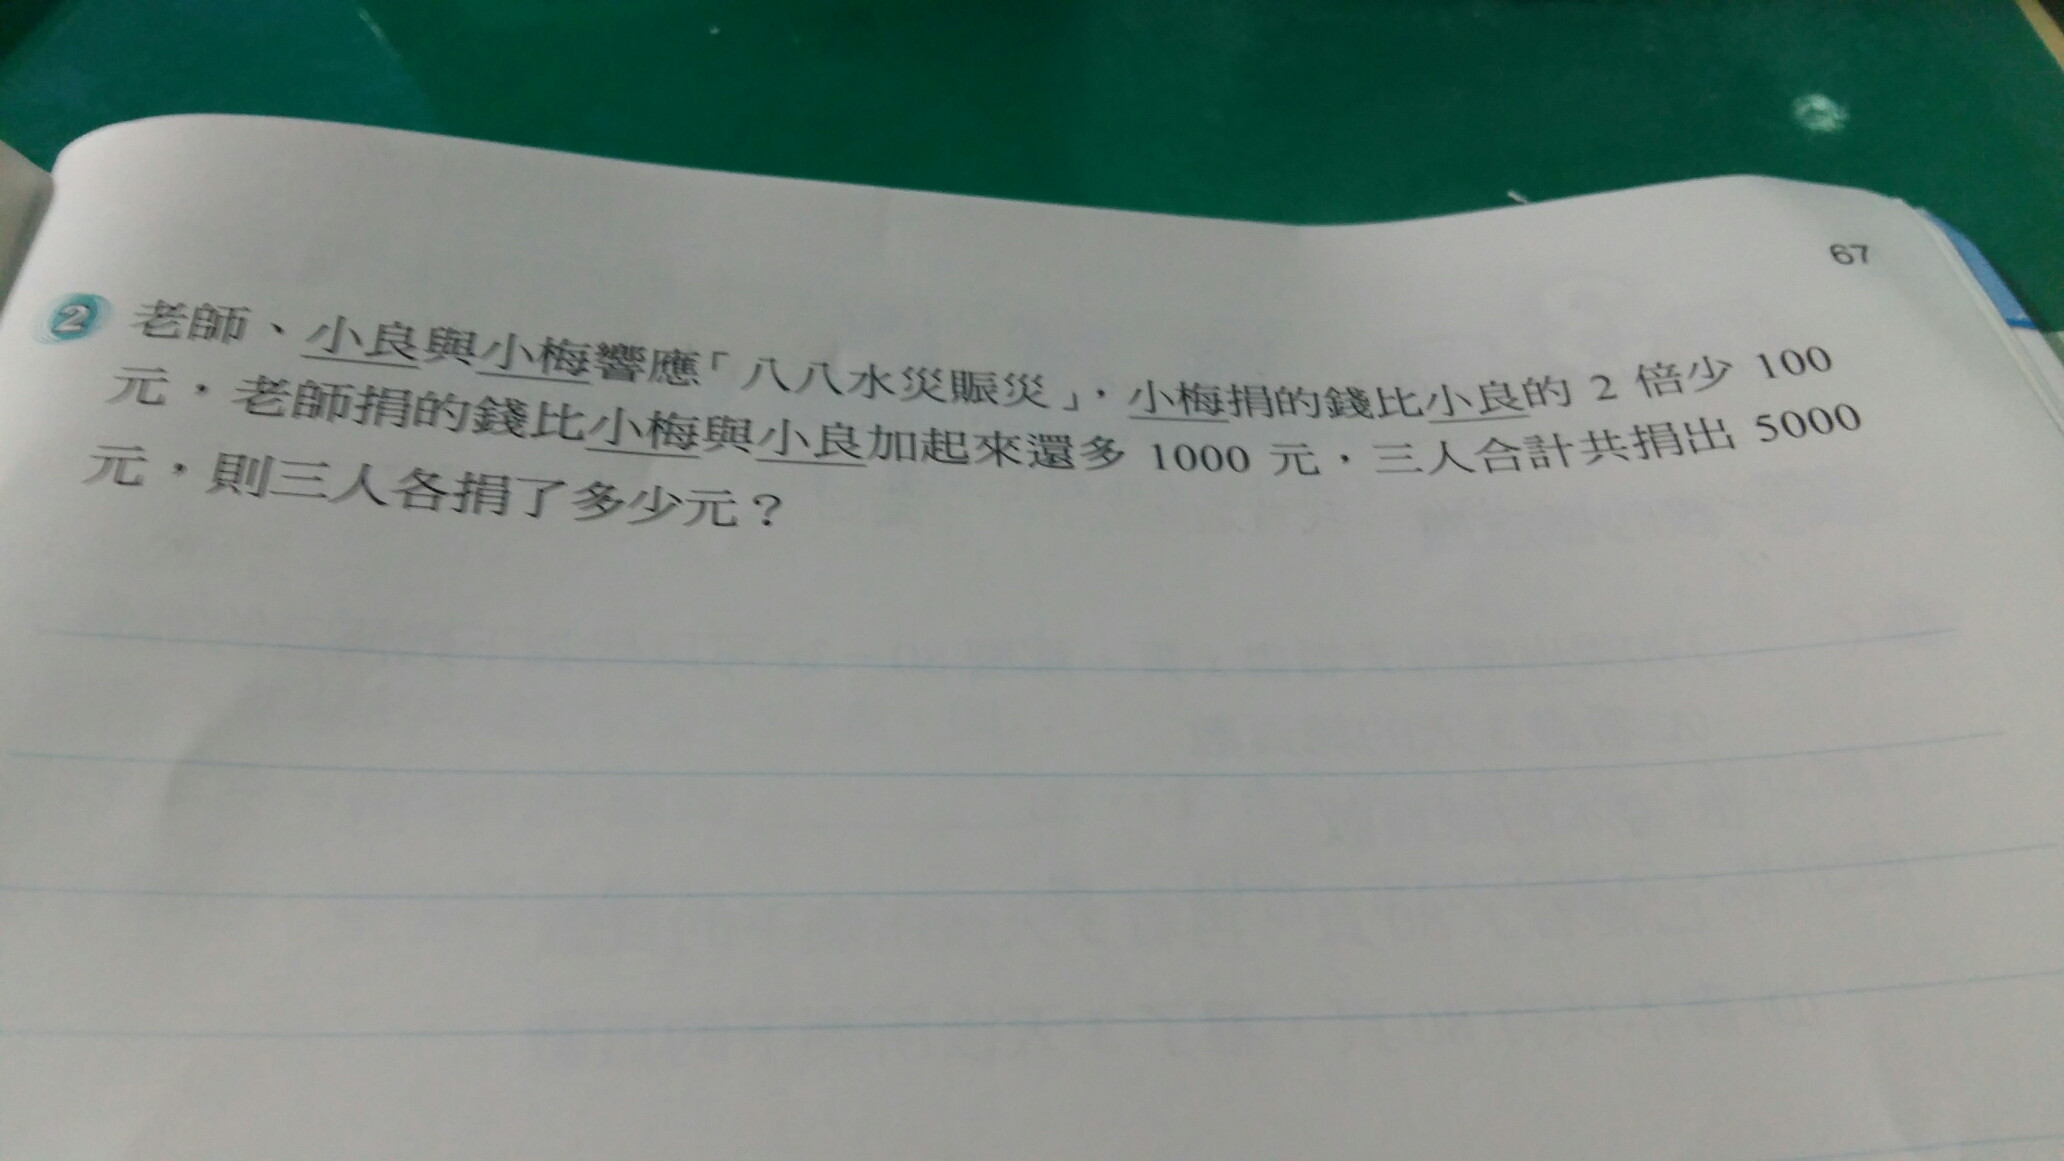 67
2 老師、小良與小梅響應「八八水災賑災」，小梅捐的錢比小良的 2 倍少 100
元，老師捐的錢比小梅與小良加起來還多 1000 元，三人合計共捐出 5000
元，則三人各捐了多少元？